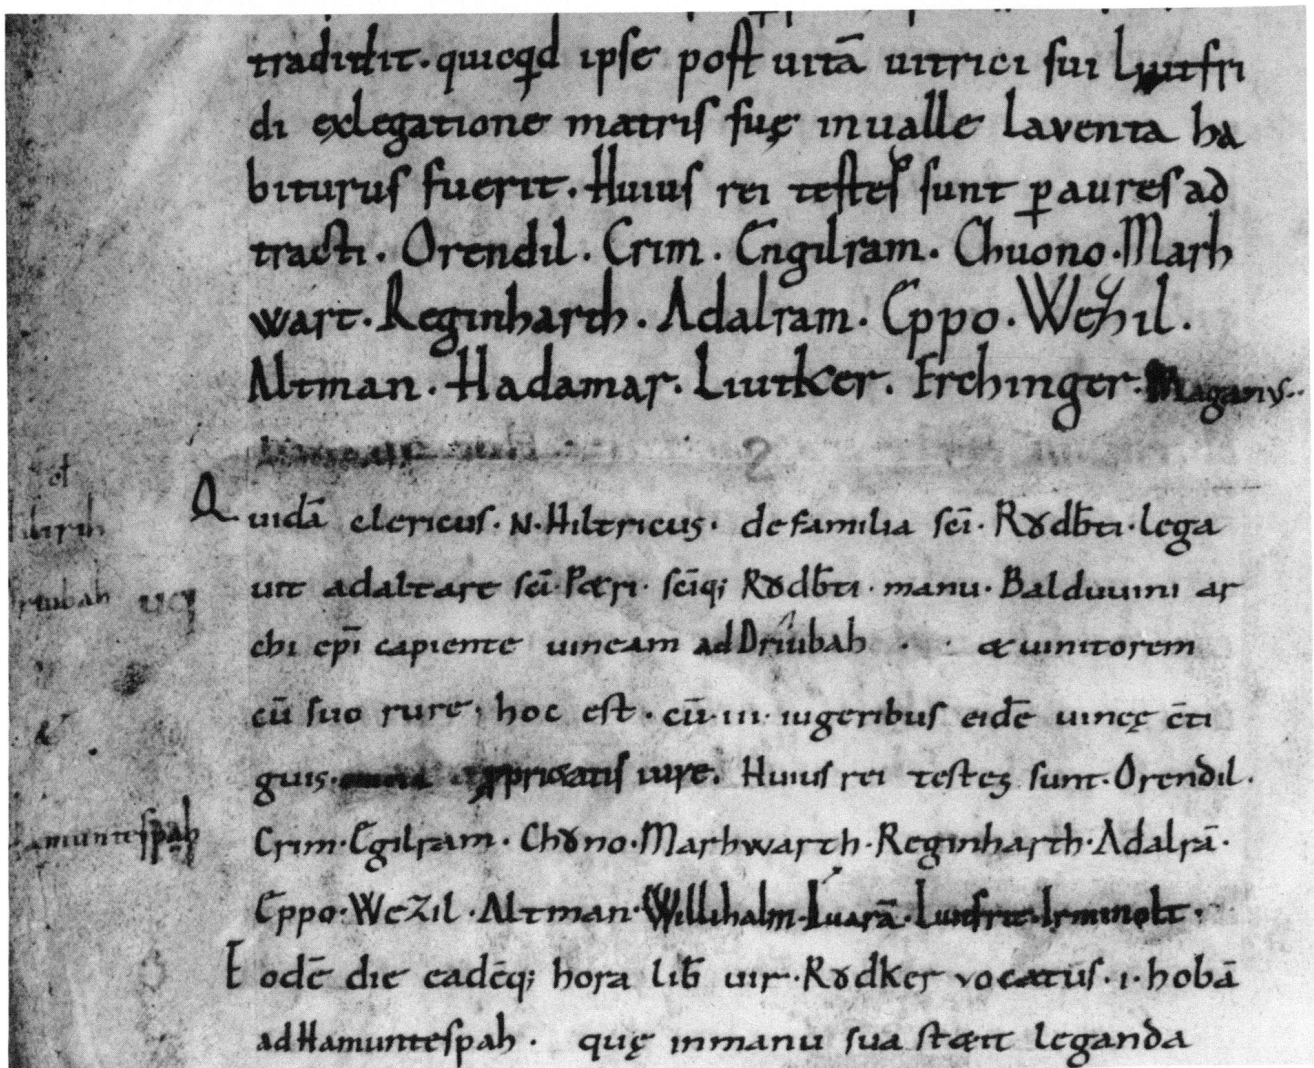 tradidit. quicqd ipse post uitā uitrici sui Liutfri
di exlegatione matris suę inualle laventa ha
biturus fuerit. Huius rei testes sunt p aures ad
tracti. Orendil. Crim. Engilram. Chuono. Marh
wart. Reginharth. Adalram. Eppo. Wezil.
Altman. Hadamar. Liutker. Erchinger. Maganus.
2
Quidā clericus. N. Hiltricus. defamilia sc̄i. Rȣdb̄ti. lega
uit adaltare sc̄i. Petri. sc̄iq; Rȣdb̄ti. manu. Balduuini ar
chi ep̄i capiente uineam ad Driubah & uinitorem
cū suo rure, hoc est. cū. iii. iugeribus eidē uinęę c̄ti
guis. priuatis iure. Huius rei testes sunt. Orendil.
Crim. Egilram. Chȣno. Marhwarth. Reginharth. Adalrā.
Eppo. Wezil. Altman. Willihalm. Liutfrit. Irminolt.
Eodē die eadēq; hora lib̄ uir. Rȣdker vocatus. i. hobā
adHamuntespah. quę inmanu sua stetit leganda
amuntespah